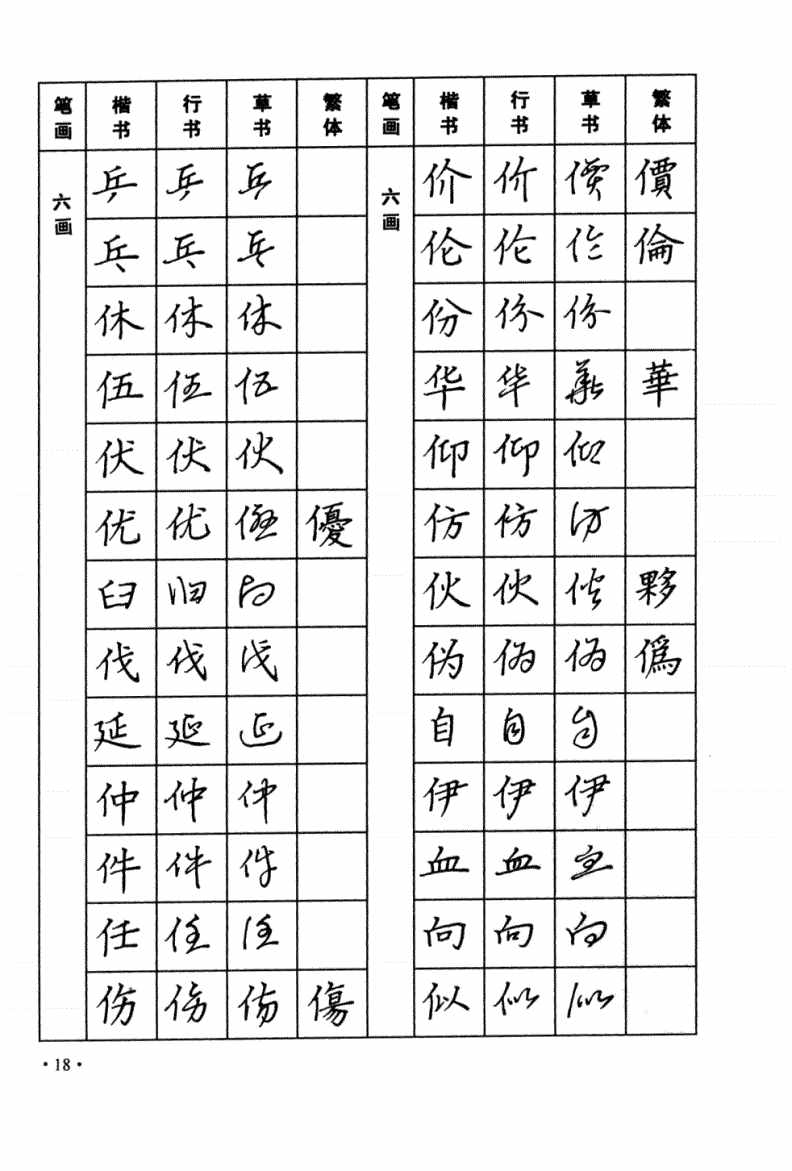 笔画 楷书 行书 草书 繁体 笔画 楷书 行书 草书 繁体
六画 乒 乒 乒 六画 价 价 價 價
乓 乓 乓 伦 伦 伦 倫
休 休 休 份 份 份
伍 伍 伍 华 华 華 華
伏 伏 伏 仰 仰 仰
优 优 優 優 仿 仿 仿
臼 臼 臼 伙 伙 伙 夥
伐 伐 伐 伪 伪 伪 僞
延 延 延 自 自 自
仲 仲 仲 伊 伊 伊
件 件 件 血 血 血
任 任 任 向 向 向
伤 伤 伤 傷 似 似 似
·18·